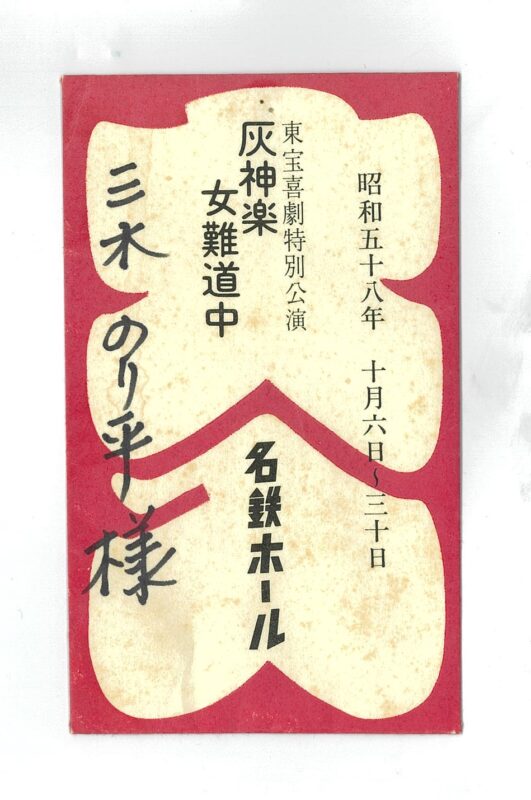 昭和五十八年 十月六日〜三十日
東宝喜劇特別公演
灰神楽
女難道中
名鉄ホール
三木のり平様